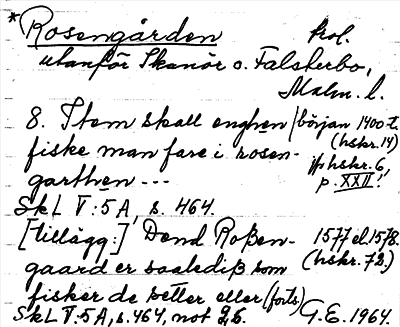 *Rosengården Prol.
utanför Skanör o. Falsterbo,
Malm. l.
8. Item skall enghen början 1400-t.
(hskr. 14)
fiske man fare i rosen- jfr hskr. 6,
garthen --- p. XXII!
SkL V:5A, s. 464.
[tillägg:] Dend Roßen- 1577 el. 1578.
gaard er saalediß som (hskr. 72.)
fisker de setter eller (forts)
SkL V:5A, s. 464, not G.E. 1964.